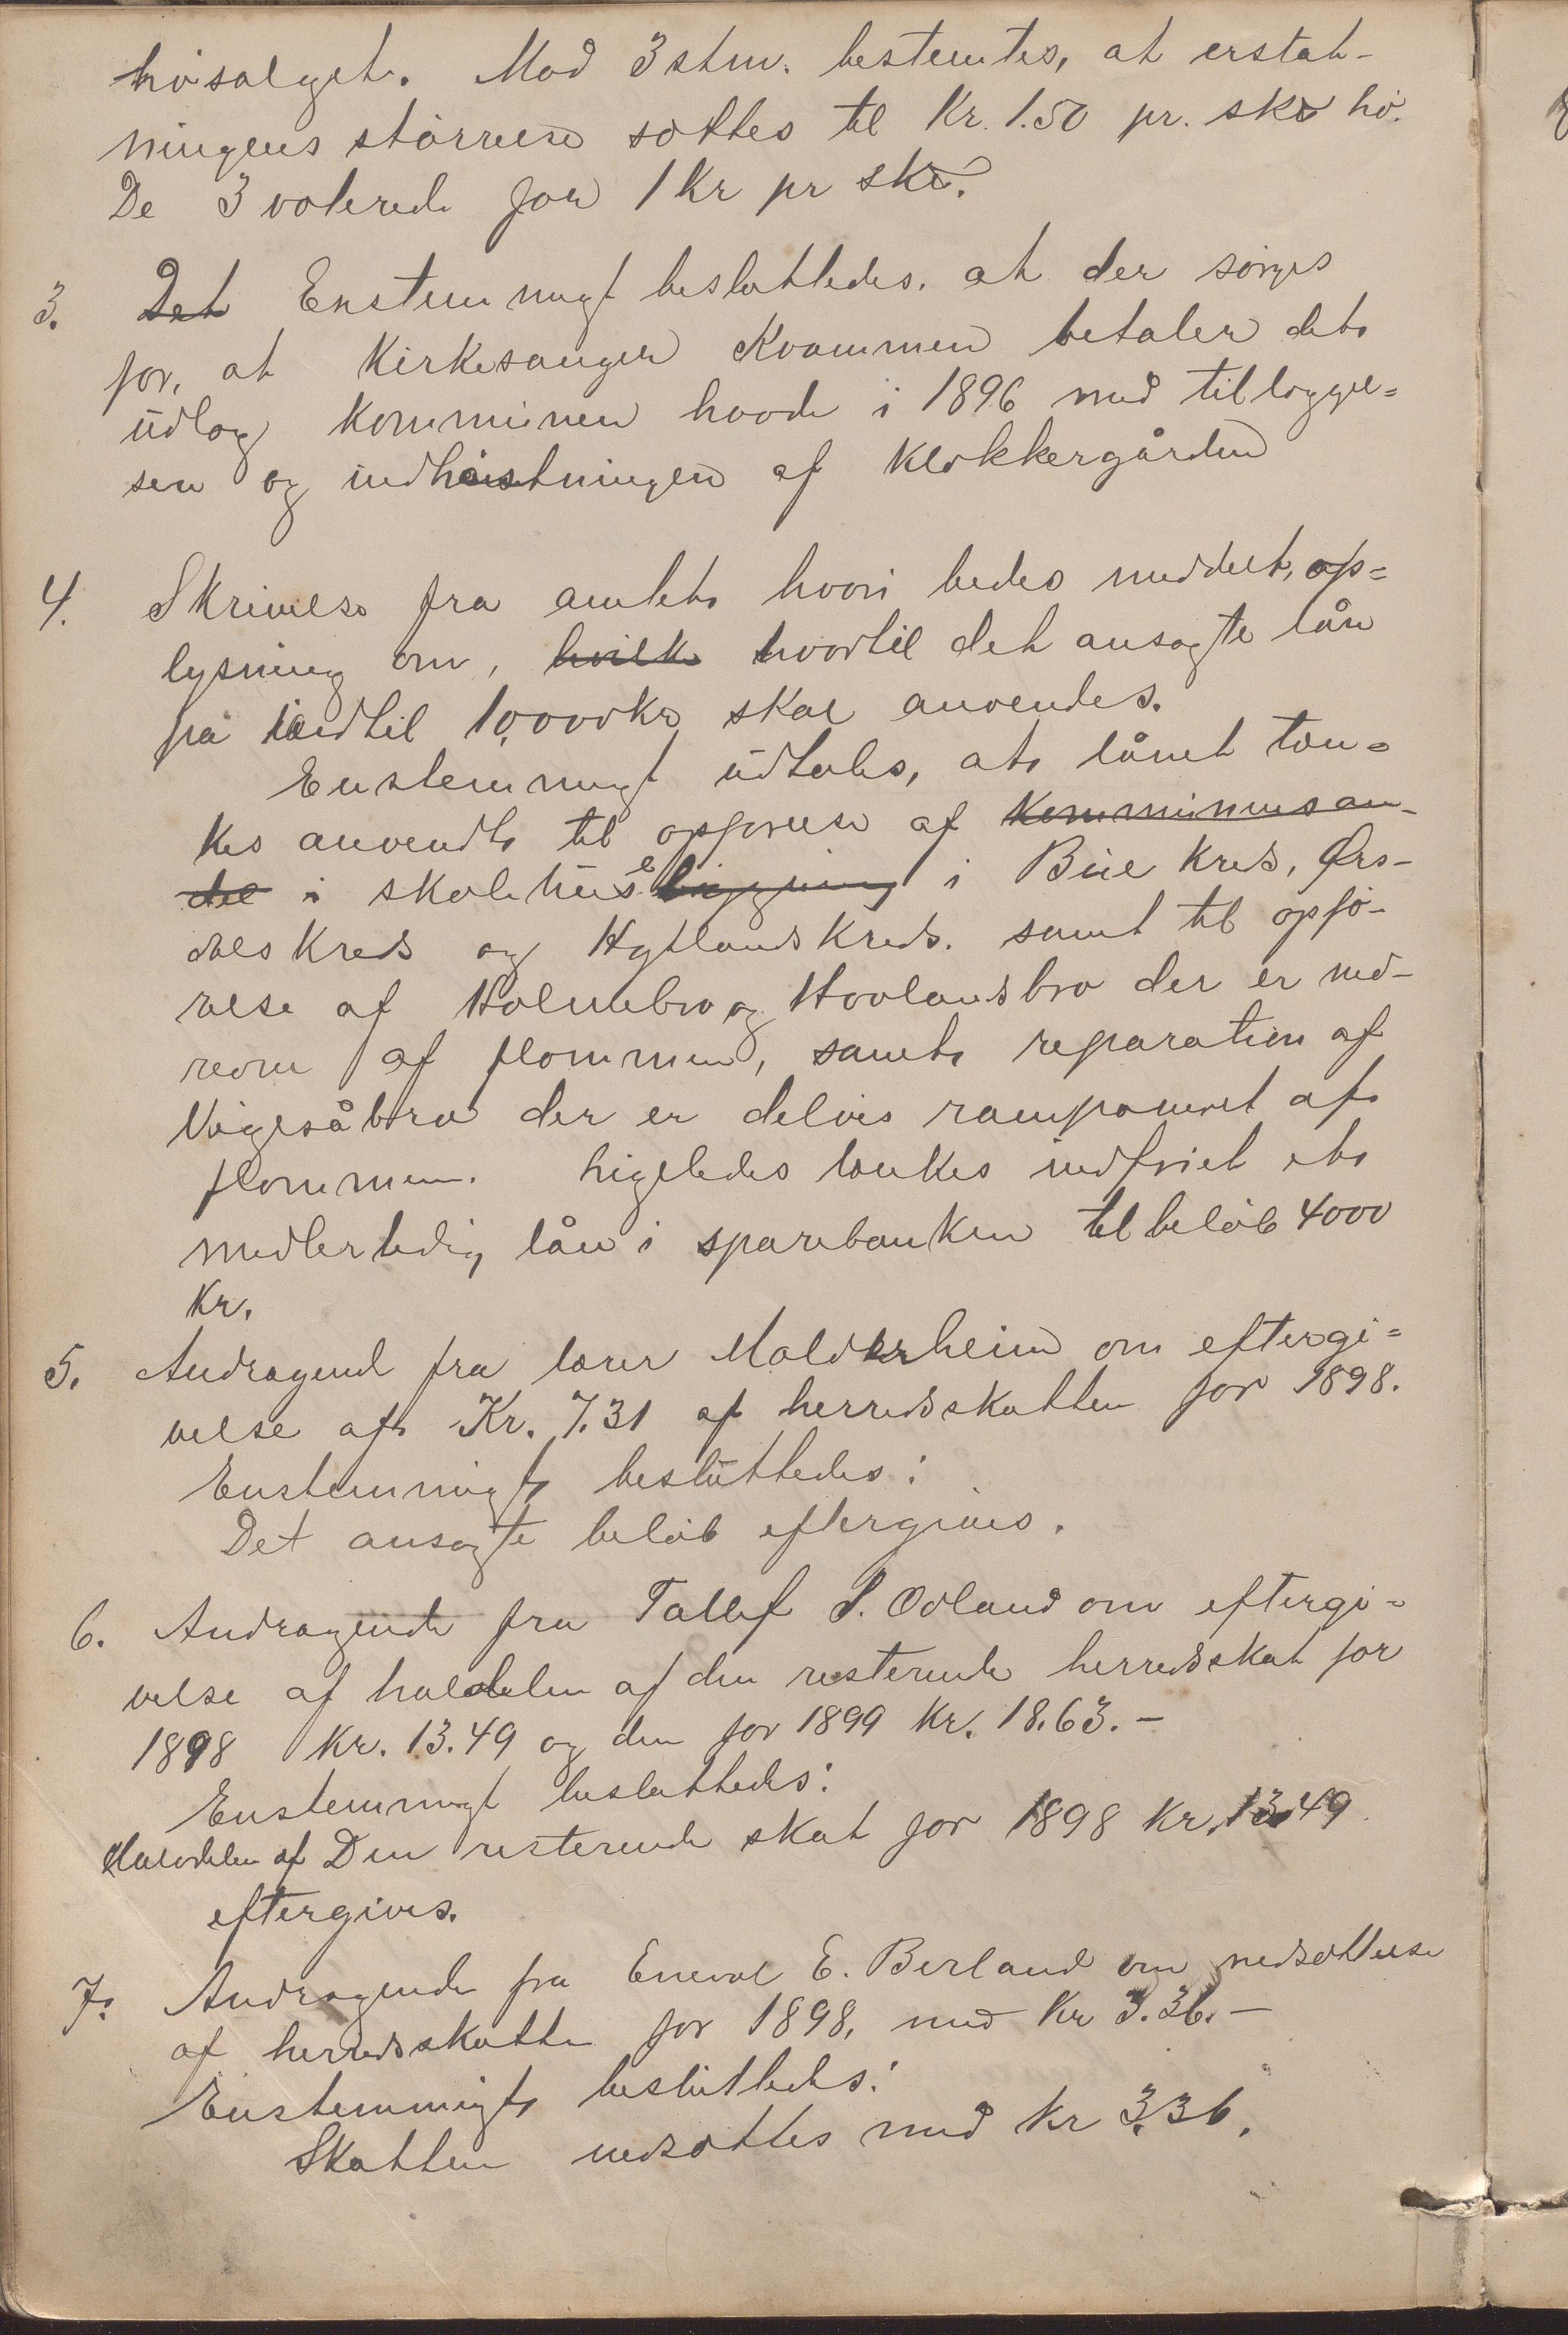 høsalget. Mod 3 stm. bestemtes, at erstat-
ningens størrelse sættes til Kr. 1.50 pr. skr hø.
De 3 voterede for 1 Kr pr skr.
3. Det Enstemmigt besluttedes, at der sørges
for, at Kirkesanger Kvammen betaler det
udlæg Kommunen havde i 1896 med tillægel=
sen og indhøstningen af Klokkergården
4. Skrivelse fra amtet hvori bedes meddelt, op=
lysning om, hvilk hvortil det ansøgte lån
på indtil 10,000 kr skal anvendes.
Enstemmigt udtales, at lånet tæn=
kes anvendt til opførelse af Kommunens an-
del i skolehuse bygning i Bue Kreds, Ørs-
dals Kreds og Hytlands Kreds. samt til opfø-
relse af Holmebro og Hovlandsbro der er ned-
revne af flommen, samt reparation af
Vigeså bro der er delvis ramponeret af
flommen. Ligeledes tænkes indfriet et
midlertidig lån i sparebanken til beløb 4000
Kr.
5. Andragend fra lærer Malderheim om eftergi=
velse af Kr. 7.31 af herredsskatten for 1898.
Enstemmigt besluttedes:
Det ansøgte beløb eftergives.
6. Andragende fra Tallef S. Odland om eftergi=
velse af halvdelen af den resterende herredsskat for
1898 Kr. 13.49 og den for 1899 Kr. 18.63.-
Enstemmigt besluttedes:
Halvdelen af Den resterende skat for 1898 Kr. 13.49
eftergives.
7. Andragende fra Eneval E. Birland om nedsættelse
af herredsskatten for 1898, med Kr 3.36.-
Enstemmigt besluttedes:
Skatten nedsættes med Kr 3.36.